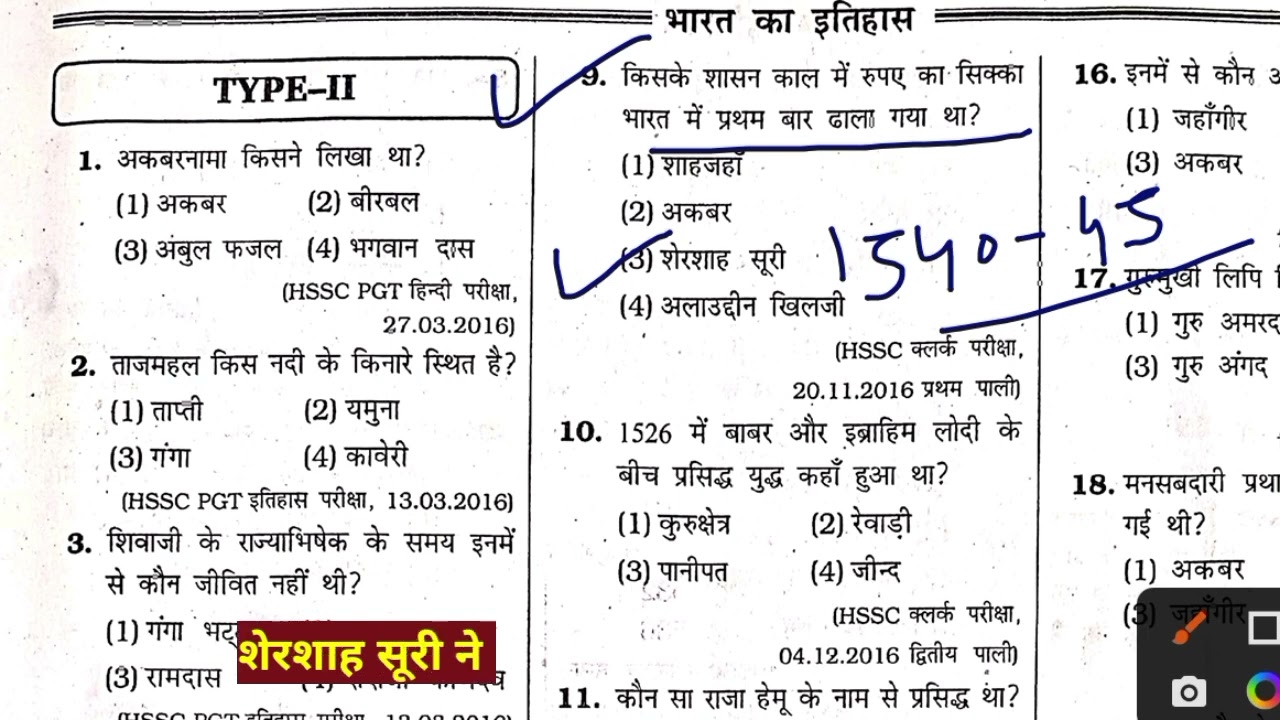 भारत का इतिहास
TYPE–II
1. अकबरनामा किसने लिखा था?
(1) अकबर (2) बीरबल
(3) अंबुल फजल (4) भगवान दास
(HSSC PGT हिन्दी परीक्षा,
27.03.2016)
2. ताजमहल किस नदी के किनारे स्थित है?
(1) ताप्ती (2) यमुना
(3) गंगा (4) कावेरी
(HSSC PGT इतिहास परीक्षा, 13.03.2016)
3. शिवाजी के राज्याभिषेक के समय इनमें
से कौन जीवित नहीं थी?
(1) गंगा
(3) रामदास
शेरशाह सूरी ने
9. किसके शासन काल में रुपए का सिक्का
भारत में प्रथम बार ढाला गया था?
(1) शाहजहाँ
(2) अकबर
(3) शेरशाह सूरी 1540-45
(4) अलाउद्दीन खिलजी
(HSSC क्लर्क परीक्षा,
20.11.2016 प्रथम पाली)
10. 1526 में बाबर और इब्राहिम लोदी के
बीच प्रसिद्ध युद्ध कहाँ हुआ था?
(1) कुरुक्षेत्र (2) रेवाड़ी
(3) पानीपत (4) जीन्द
(HSSC क्लर्क परीक्षा,
04.12.2016 द्वितीय पाली)
11. कौन सा राजा हेमू के नाम से प्रसिद्ध था?
16. इनमें से कौन
(1) जहाँगीर
(3) अकबर
17. गुरुमुखी लिपि
(1) गुरु अमरद
(3) गुरु अंगद
18. मनसबदारी प्रथा
गई थी?
(1) अकबर
(3) जहाँगीर